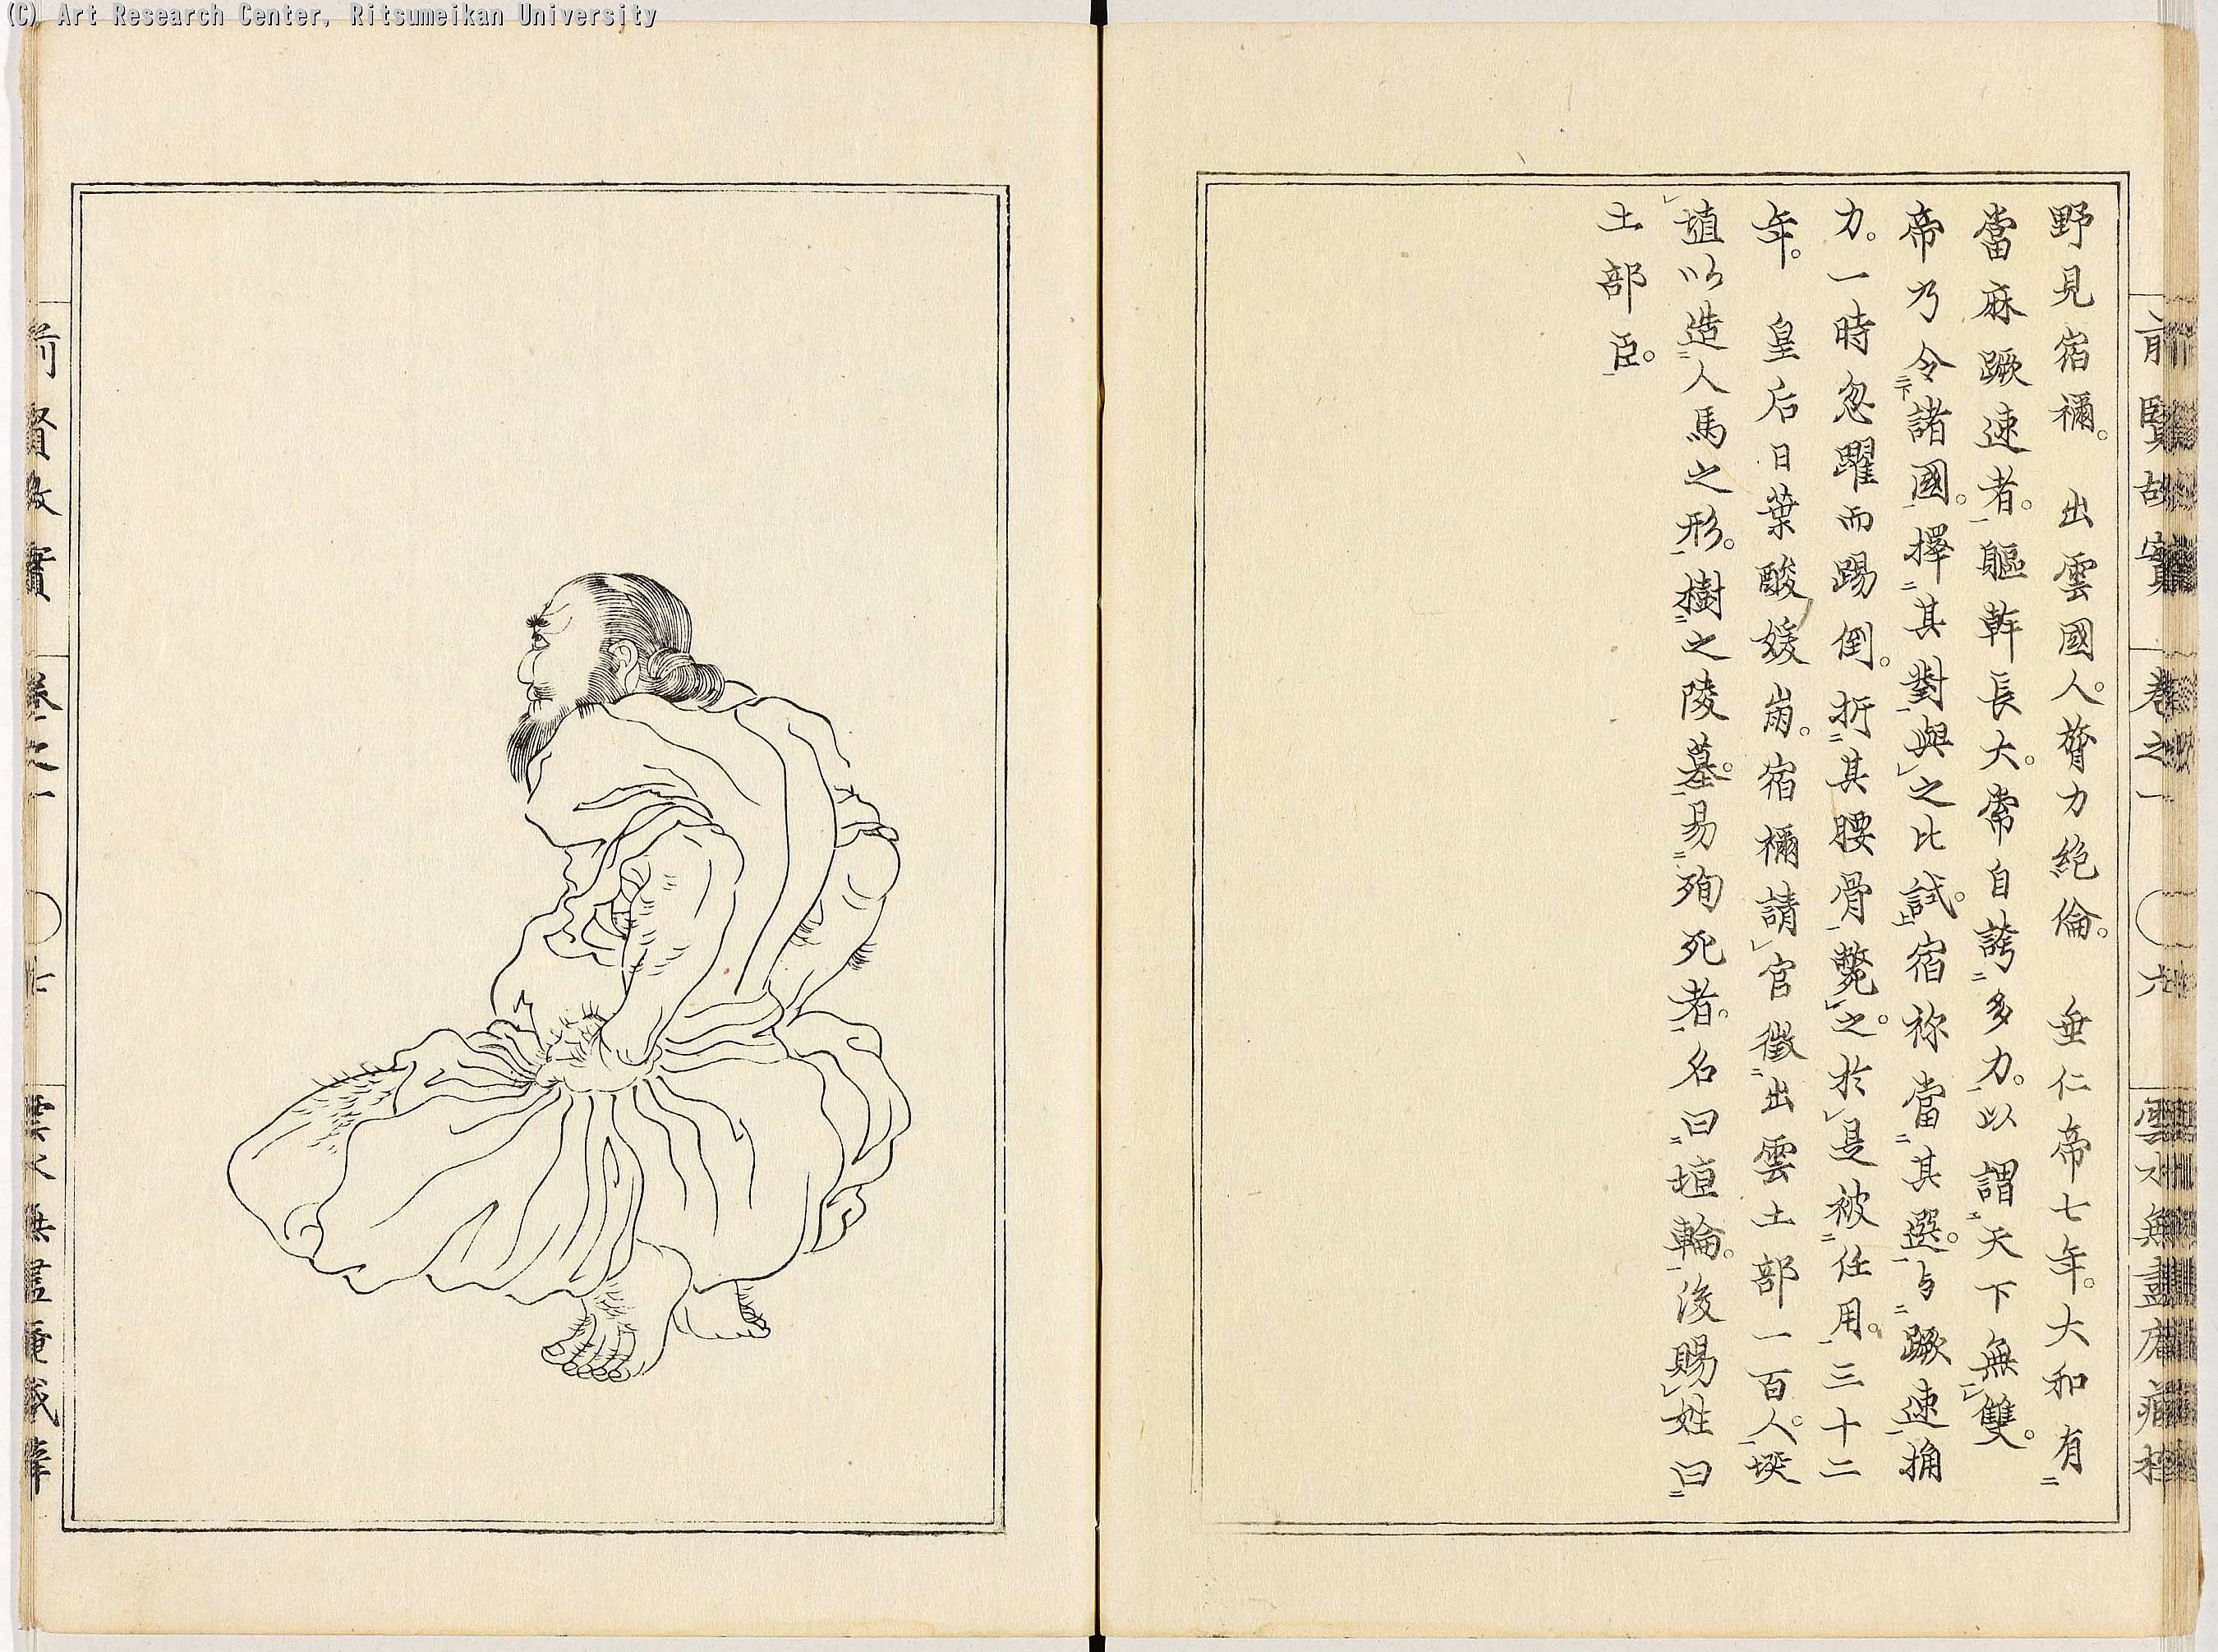 (C) Art Research Center, Ritsumeikan University
野見宿禰。 出雲國人。膂力絶倫。 垂仁帝七年。大和有
當麻蹶速者。軀幹長大。常自誇多力。以謂天下無雙。
帝乃令諸國。擇其對與之比試。宿祢當其選。与蹶速捔
力。一時忽躍而踢倒。折其腰骨斃之。於是被任用。三十二
年。 皇后日葉酸媛崩。宿禰請官徵出雲土部一百人。埏
埴以造人馬之形。樹之陵墓。易殉死者。名曰埴輪。後賜姓曰
土部臣。
前賢故實 卷之一 六 雲水無盡庵
前賢故實 卷之一 七 雲水無盡庵藏